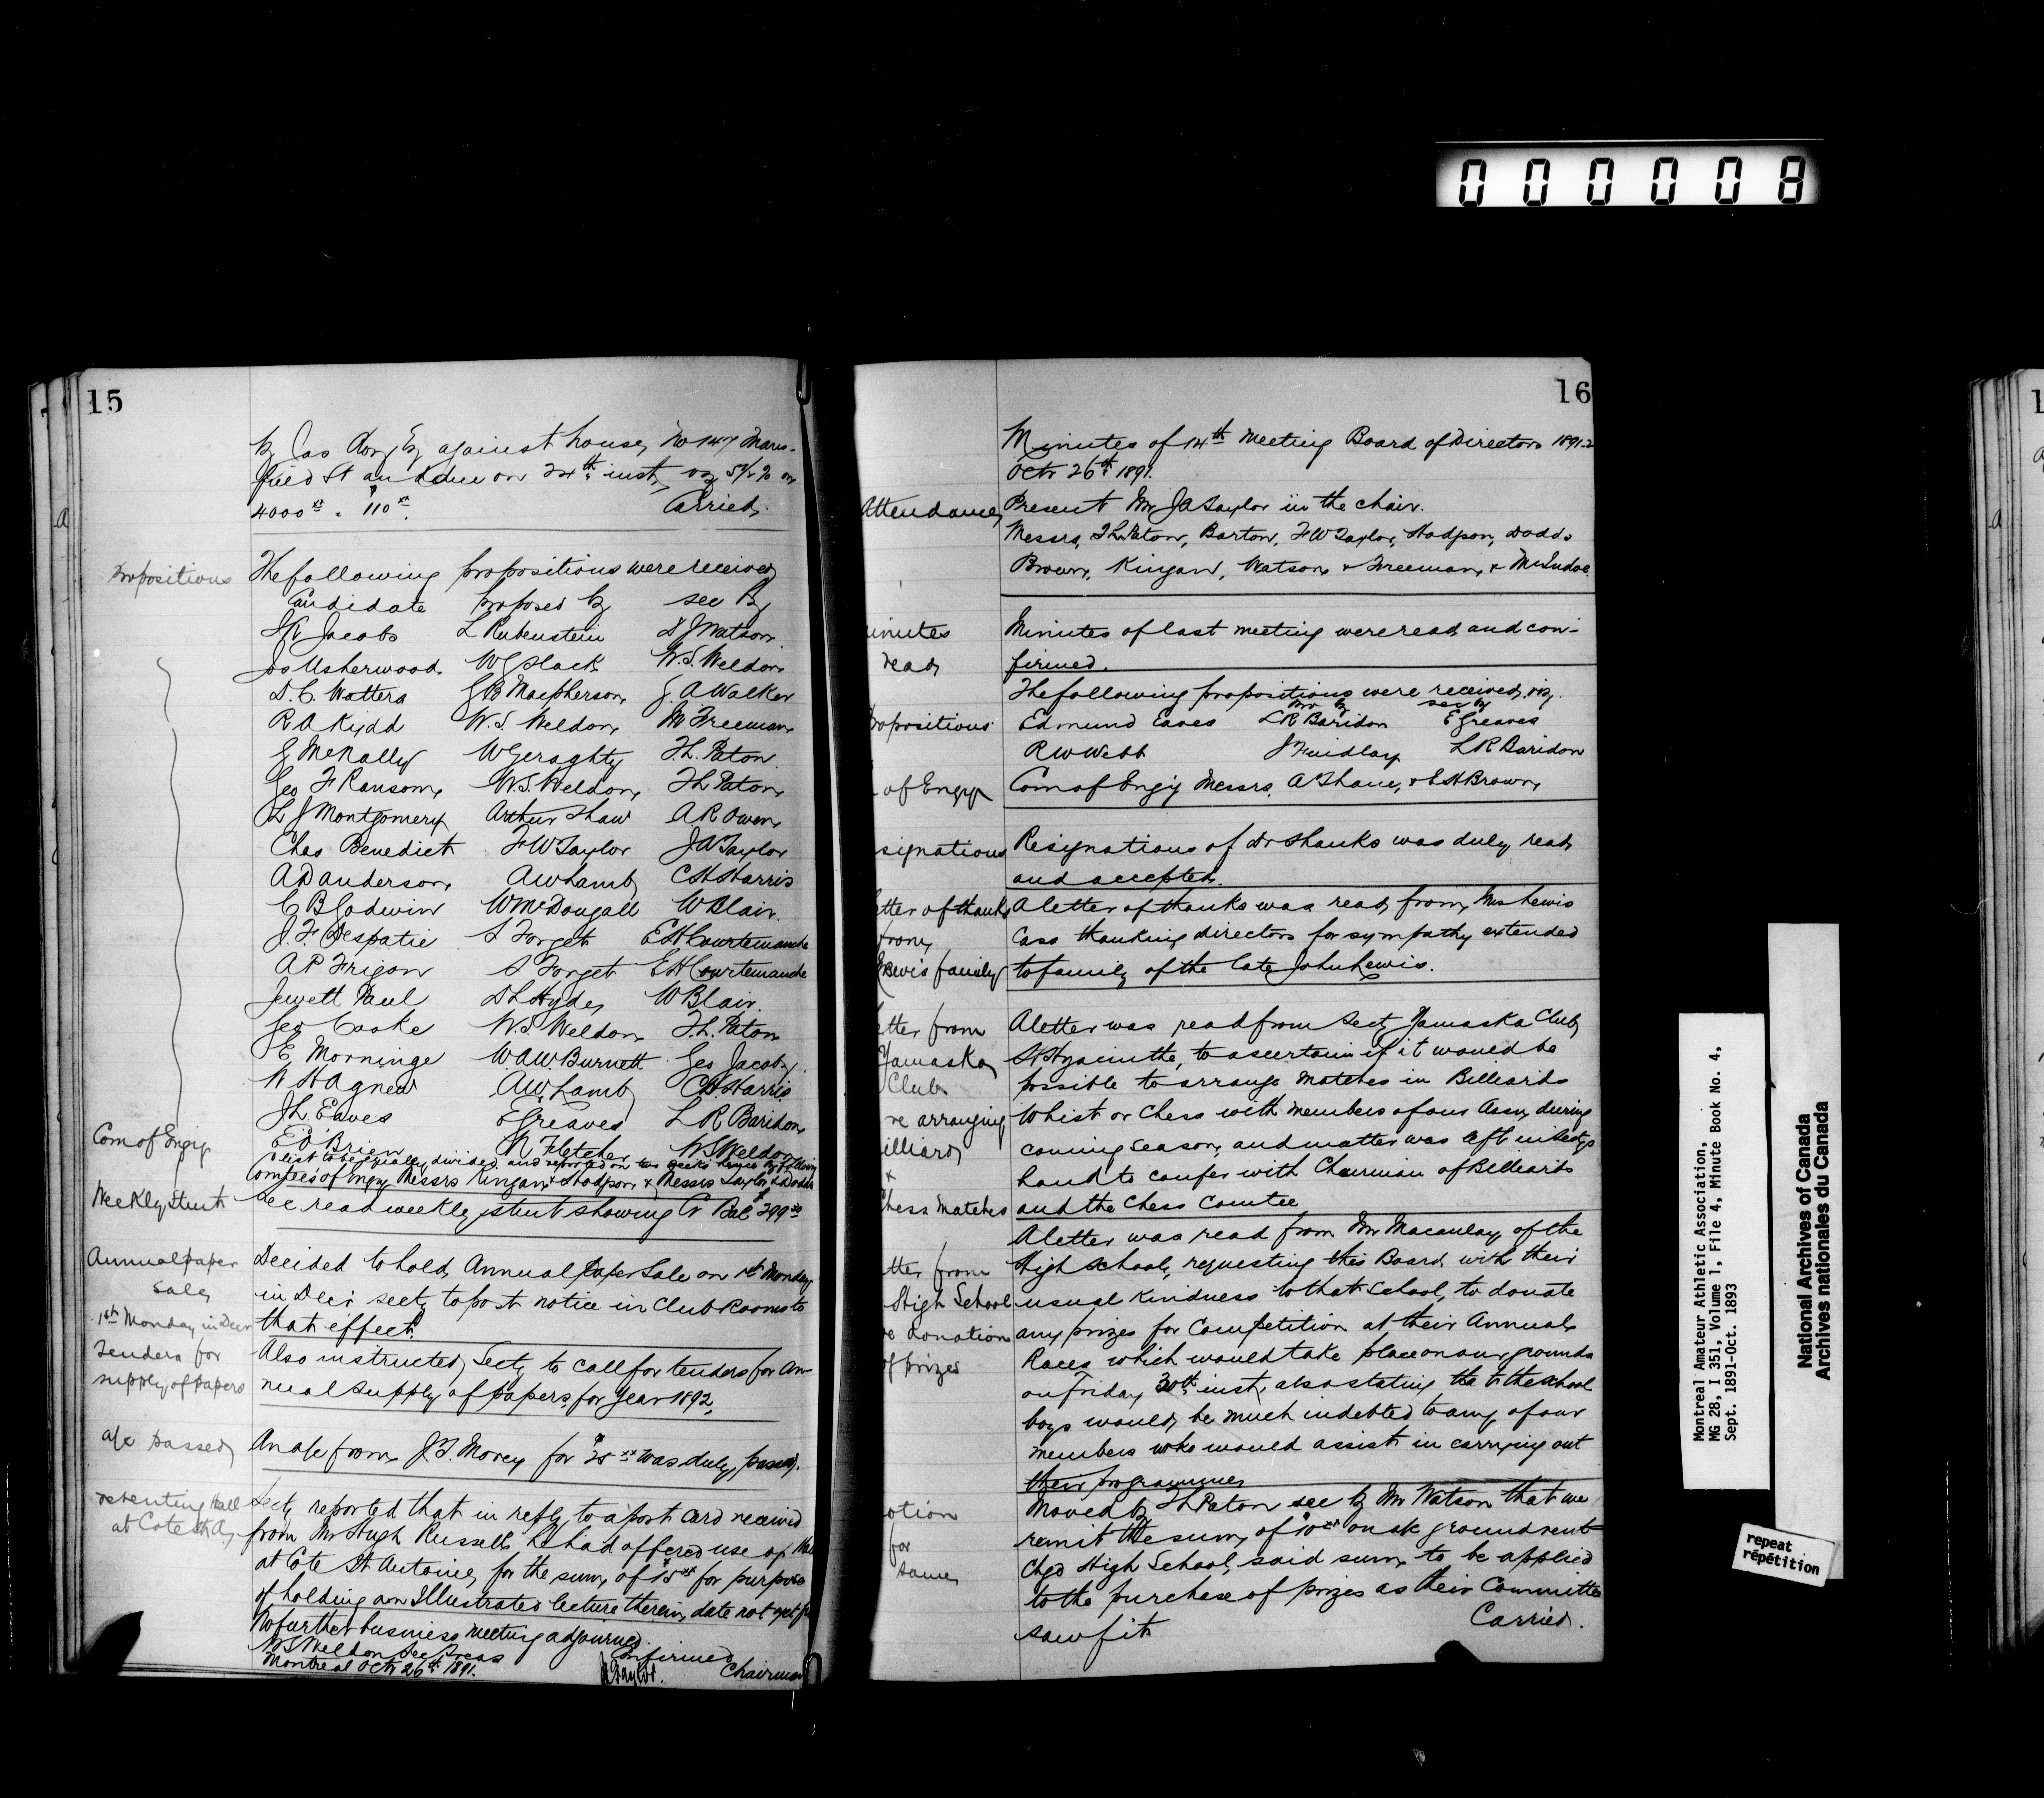 000008
15
by Jas Amy Esq against house, No 147 Mans-
field St and due on 24th inst, viz 5 1/2 % on
4000.xx = $110.xx Carried.
Propositions
The following propositions were received
Candidate proposed by sec by
J K Jacobs L Rubenstein D J Watson
Jos Usherwood W G Slack W.S. Weldon
D. C. Watters G B Macpherson J. A Walker
R A Kydd W. S. Weldon M Freeman
G McNally W Geraghty T. L. Paton
Geo F Ransom W.S. Weldon T L Paton
L J Montgomery Arthur Shaw A R Owen
Chas Benedict F W Taylor J A Taylor
A D Anderson A W Lamb C H Harris
C B Godwin W McDougall W Blair
J. F Despatie A Forget E H Courtemanche
A P Frigon A Forget E H Courtemanche
Jewett Paul D L Hyde W Blair
Geo Cooke W. S. Weldon T. L. Paton
E. Morninge W.A.W. Burnett Geo Jacoby
W H Agnew A.W. Lamb C H. Harris
J L Eaves E Greaves L R Baridon
E O'Brien N Fletcher W S Weldon
Com of Enqy
list to be equally divided and reported on two weeks hence by following
Comtees of Enqy Messrs Kingan & Hodgson & Messrs Taylor & Dodds
Weekly Stmt
Sec read weekly stmt showing Cr Bal $299
Annual paper
Sale
1st Monday in Decr
Decided to hold Annual Paper Sale on 1st Monday
in Decr secty to post notice in Club Rooms to
that effect.
Tenders for
supply of papers
Also instructed Secty to call for tenders for An-
nual supply of papers for year 1892.
a/c passed
An a/c from J. T. Morey for $25.xx was duly passed.
re renting Hall
at Cote St A.
Secty reported that in reply to a post card received
from Mr Hugh Russell he had offered use of Hall
at Cote St Antoine for the sum of $15.xx for purpose
of holding an Illustrated lecture therein, date not yet
No further business meeting adjourned.
W S Weldon Sec Treas Confirmed
Montreal Oct 26th 1891. J A Taylor. Chairman
16
Minutes of 14th Meeting Board of Directors 1891-2
Octr 26th 1891.
Attendance
Present Mr J A Taylor in the chair.
Messrs, T L Paton, Barton, F W Taylor, Hodgson, Dodds
Brown, Kingan, Watson & Freeman, & McIndoe.
inutes
read
Minutes of last meeting were read and con-
firmed.
The following propositions were received viz.
pro by sec by
opositions
Edmund Eaves L R Baridon E Greaves
R W Webb J Findlay L R Baridon
of Enqy
Com of Enqy Messrs. A Shane, & E H Brown,
signations
Resignations of Dr Shanks was duly read
and accepted.
etter of thanks
from
Lewis family
A letter of thanks was read from Mrs Lewis
Cass thanking directors for sympathy extended
to family of the late John Lewis.
etter from
Yamaska
Club
re arranging
illiard
&
hess matches
A letter was read from Secty Yamaska Club
St Hyacinthe, to ascertain if it would be
possible to arrange Matches in Billiards
Whist or Chess with members of our Assn during
coming season, and matter was left in Sectys
hand to confer with Chairman of Billiards
and the Chess Comtee
tter from
High School
re donation
of prizes
A letter was read from Mr Macaulay of the
High School, requesting this Board with their
usual kindness to that School, to donate
any prizes for Competition at their Annual
Races which would take place on our grounds
on Friday 30th inst, also stating tha t the school
boys would be much indebted to any of our
members who would assist in carrying out
their programme
otion
for
same
Moved by T L Paton sec by Mr Watson that we
remit the sum of $10.xx on a/c ground rent
Chgd High School, said sum to be applied
to the purchase of prizes as their Committee
saw fit Carried.
Montreal Amateur Athletic Association,
MG 28, I 351, Volume 1, File 4, Minute Book No. 4,
Sept. 1891-Oct. 1893
National Archives of Canada
Archives nationales du Canada
repeat
répétition